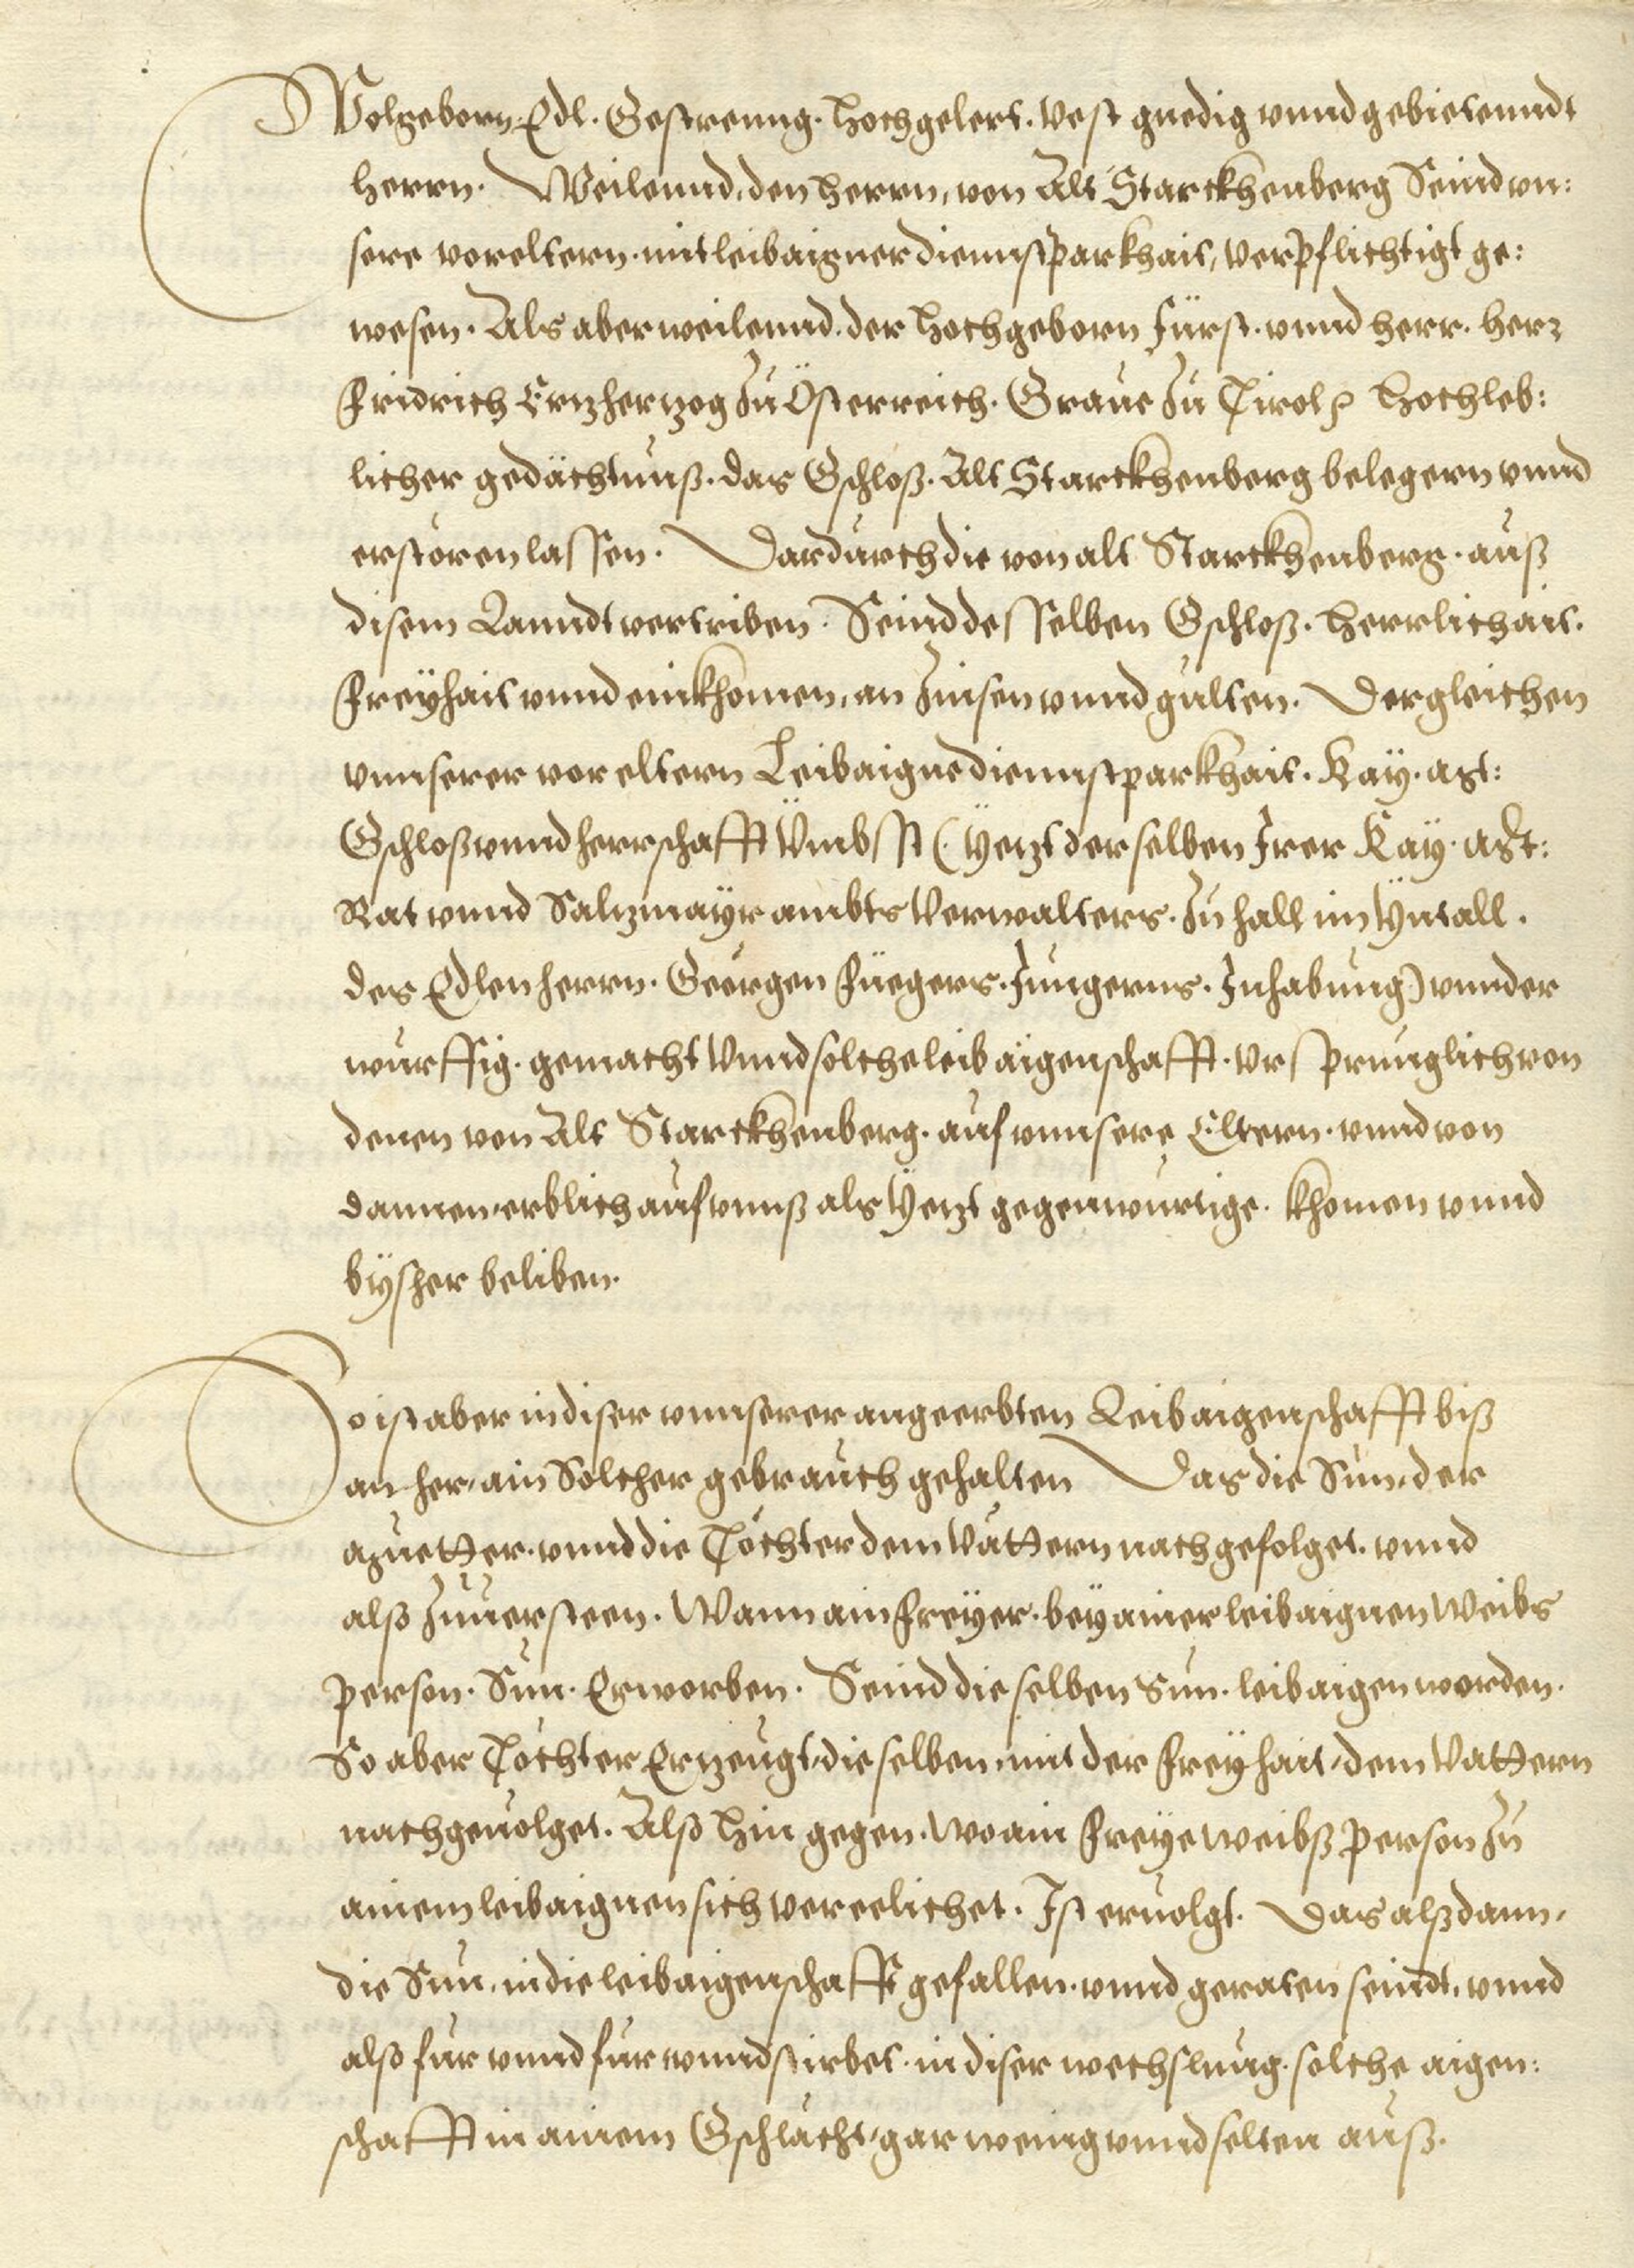 Wolgeborn. Edl. Gestreng. Hochgelert. Vest gnedig vnnd gebietenndt
herrn. Weilennd, den herrn, von Alt Starckhenberg Seind vn:
sere voreltern. mit leibaigner diennstparkhait, verpflichtigt ge:
wesen. Als aber weilennd. der Hochgeborn Fürst. vnnd herr. herr
Fridrich Ertzhertzog Zu Österreich. Graue Zu Tirol Hochleb:
licher gedächtnuß. das Gschloß. Alt Starckhenberg belegern vnnd
erstören lassen. Dardurch die von alt Starckhenberg. auß
disem Lanndt vertriben. Seind desselben Gschloß. Herrlichait.
Freyhait vnnd einkhomen, an Zinsen vnnd gülten. Dergleichen
vnnserer vor eltern Leibaigne diennstparkhait. Kay. Mt:
Gschloß vnnd herrschafft Vmbsst (Yetzt derselben Irer Kay. Mt:
Rat vnnd Saltzmayr ambts Verwalters. Zu hall im Yntall.
des Edlen herrn. Geörgen Füegers. Jungerns. Inhabung) vnnder
würffig. gemacht Vnnd solche leibaigenschafft. vrsprunglich von
denen von Alt Starckhenberg. auf vnnsere Eltern. vnnd von
dannen, erblich auf vnnß als Yetzt gegenwürtige. khomen vnnd
byßher beliben.
So ist aber in diser vnnserer angeerbten Leibaigenschafft biß
an her, ain Solcher gebrauch gehalten Das die Sün, der
Muetter. vnnd die Töchter dem Vattern nachgefolget. vnnd
also Zuuersteen. Wann ain Freyer. bey ainer leibaignen Weibs
person. Sün. Erworben. Seind dieselben Sün. leibaigen worden.
So aber Töchter Ertzeugt, dieselben, mit der Freyhait, dem Vattern
nachgeuolget. Also hin gegen. wo ain Freye weibß person Zu
ainem leibaignen sich vereelichet. Ist eruolgt. Das alßdann,
die Sün, in die leibaigenschafft gefallen. vnnd geraten seindt, vnnd
also für vnnd für vnnd stirbet. in diser wechslung. solche aigen:
schafft in ainem Gschlächt, gar wenig vnnd selten auß.